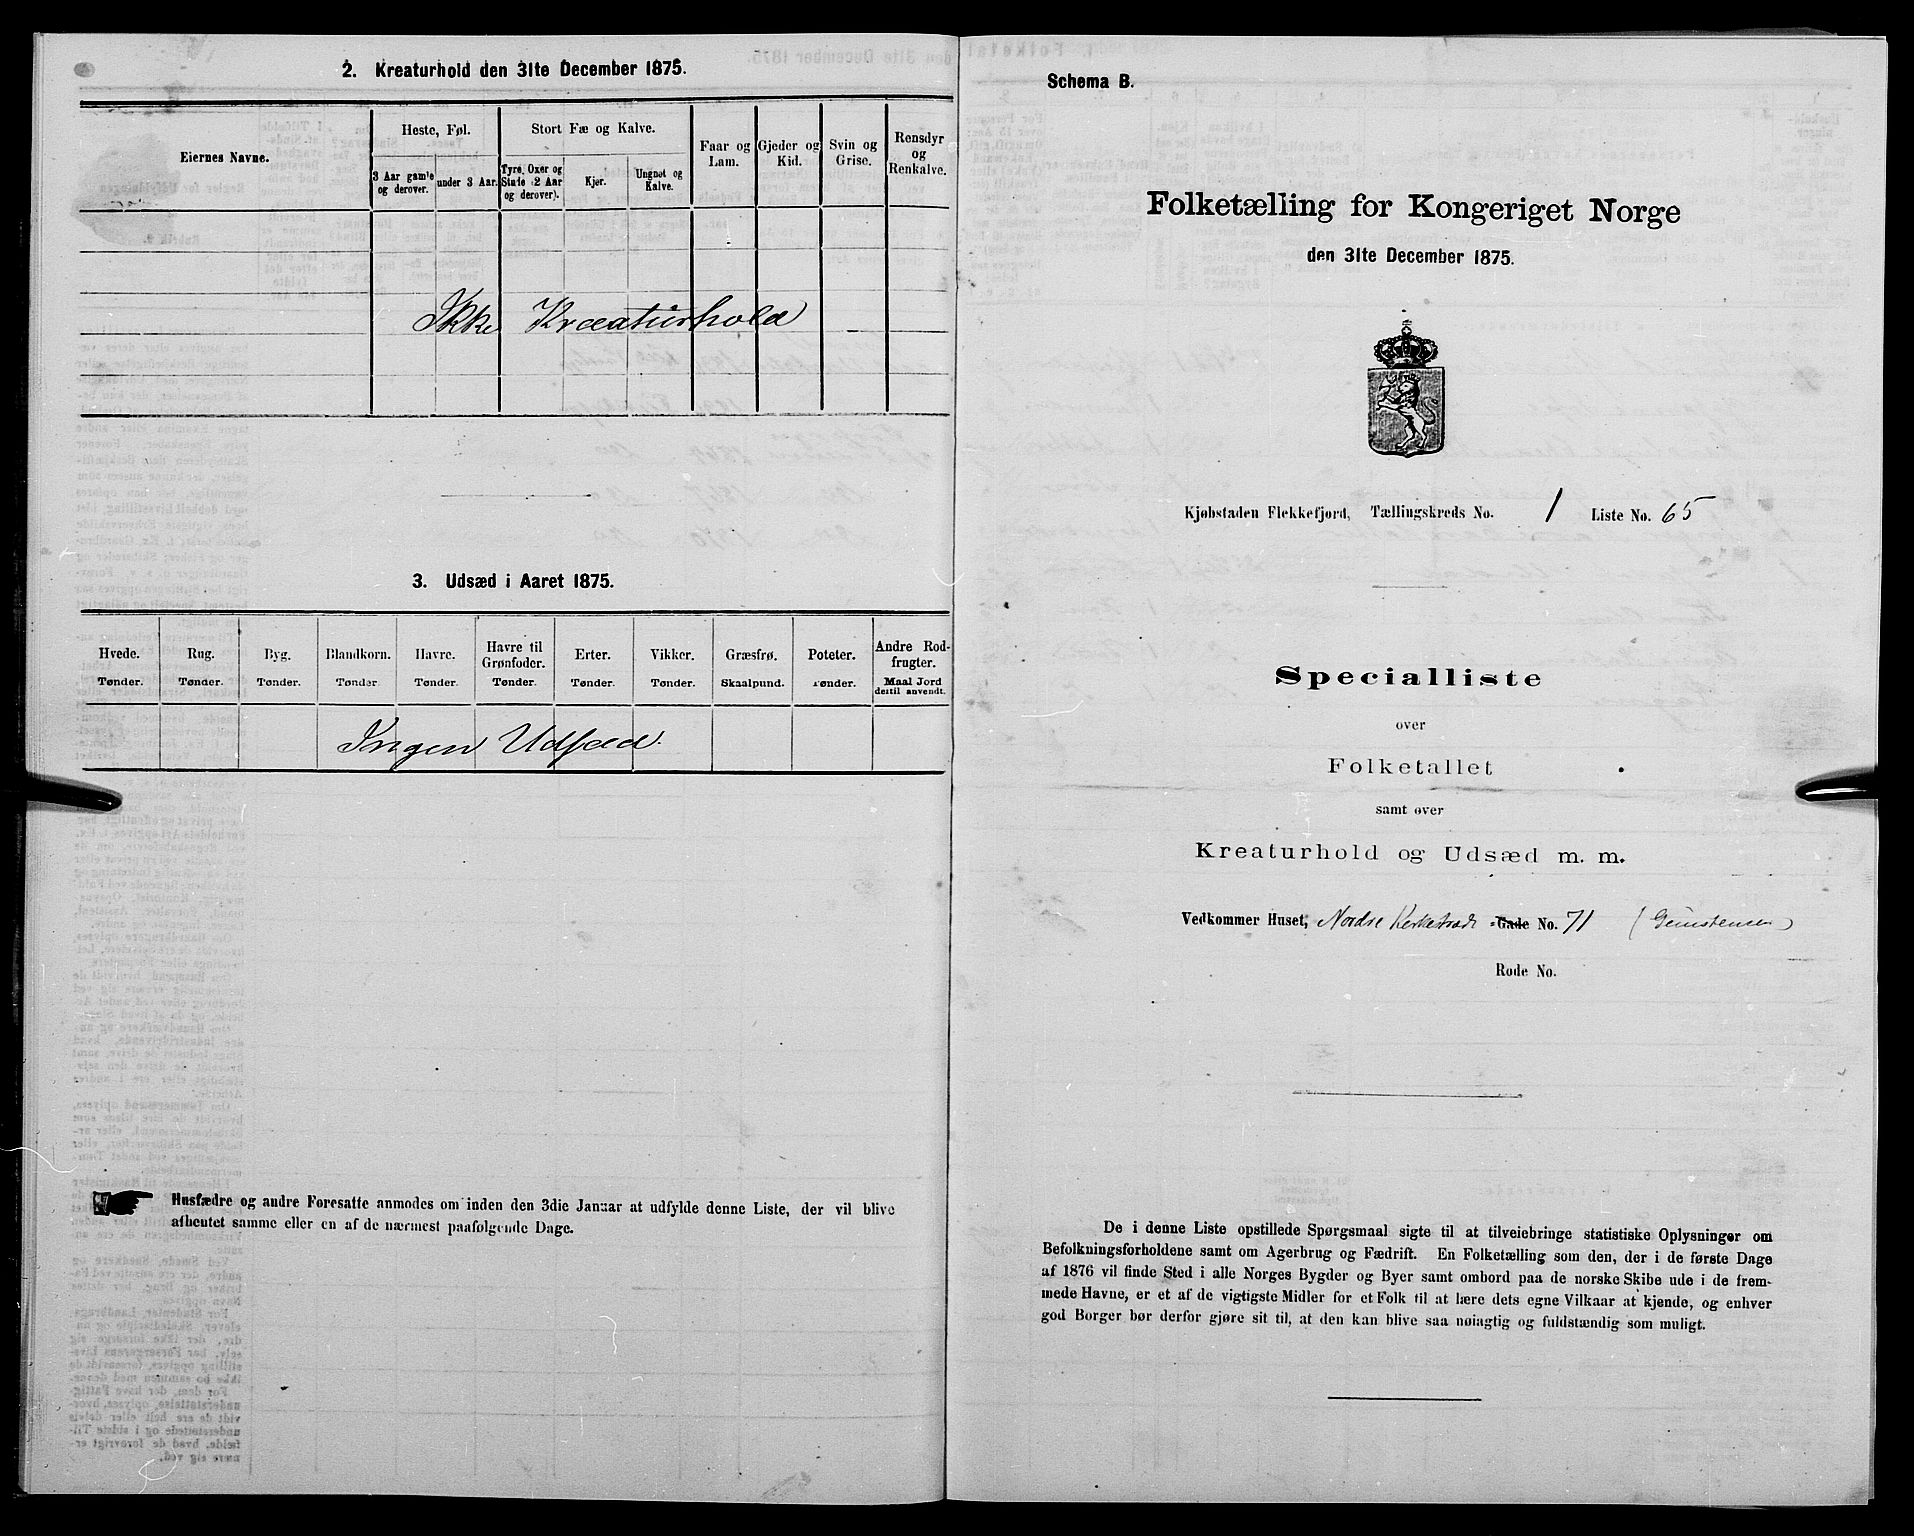 2. Kreaturhold den 31te December 1875.
Eiernes Navne.
Heste, Føl.
3 Aar gamle og derover.
under 3 Aar.
Stort Fæ og Kalve.
Tyre, Oxer og Stude (2 Aar og derover).
Kjør.
Ungnøt og Kalve.
Faar og Lam.
Gjeder og Kid.
Svin og Grise.
Rensdyr og Renkalve.
Ikke Kreaturhold
3. Udsæd i Aaret 1875.
Hvede. Rug. Byg. Blandkorn. Havre. Havre til Grønfoder. Erter. Vikker. Græsfrø. Poteter. Andre Rodfrugter.
Tønder. Tønder. Tønder. Tønder. Tønder. Tønder. Tønder. Tønder. Skaalpund. Tønder. Maal Jord dertil anvendt.
Ingen Udsæd.
Husfædre og andre Foresatte anmodes om inden den 3die Januar at udfylde denne Liste, der vil blive
afhentet samme eller en af de nærmest paafølgende Dage.
Schema B.
Folketælling for Kongeriget Norge
den 31te December 1875.
Kjøbstaden Flekkefjord, Tællingskreds No. 1 Liste No. 65
Specialliste
over
Folketallet
samt over
Kreaturhold og Udsæd m. m.
Vedkommer Huset, Nordre Kirkestræde Gade No. 71
Rode No.
De i denne Liste opstillede Spørgsmaal sigte til at tilveiebringe statistiske Oplysninger om
Befolkningsforholdene samt om Agerbrug og Fædrift. En Folketælling som den, der i de første Dage
af 1876 vil finde Sted i alle Norges Bygder og Byer samt ombord paa de norske Skibe ude i de frem-
mede Havne, er et af de vigtigste Midler for et Folk til at lære dets egne Vilkaar at kjende, og enhver
god Borger bør derfor gjøre sit til, at den kan blive saa nøiagtig og fuldstændig som muligt.